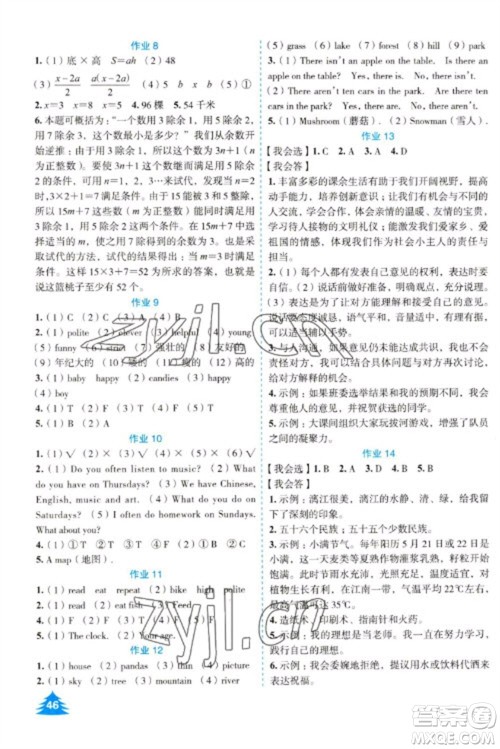 作业 8
1. (1) 底×高 S=ah (2) 48
(3) x-2a/2 a(x-2a)/2 (4) 5 b x b (5) ①
2. x=3 x=8 x=8 4. 96棵 5. 54千米
6. 本题可以概括为:“一个数用 3 除余 2,用 5 除余 2,
用 7 除余 3,这个数最小是几?”我们从余数开
始逆推:由于用 3 除余 1,所以这个数为 3n+1(n
为正整数)。要使 3n+1 这个数继续满足用 5 除
余 2 的条件,可用 n=1,2,3…来试代,发现当
n=2时,3×2+1=7满足条件。由于15能被3和5
整除,所以 15m+7 这些数(m 为正整数)也能满
足用 3 除余 1,用 5 除余 2 的两个条件。在 15m+7
中选择适当的 m,使之用 7 除得到的余数为 3,也
是采取试代的方法,试代的结果得到:当m=3时
满足条件。这样 15×3+7=52 为所求的答案,也就
是说这篮桃子至少 52 个。
作业 9
1. (1) C (2) B (3) A (4) B
2. (1) polite (2) clever (3) helpful (4) young
(5) funny (6) strict (7) 强壮的 (8) 友好的
(9) 年纪大的 (10)
3. (1) baby happy (2) candies (3) happy
(4) boy
4. (1) T (2) F (3) T (4) F (5) T
作业 10
1. (1) √ (2) × (3) × (4) √ (5) ×
2. (1) Do you often listen to music? (2) What do
you have on Thursdays? (3) We have Chinese,
English, music and art. (4) What do you do on
Saturdays? (5) I often do my homework.
What about you?
4. (1) ① T ② F (2) ④ (3) ② (4) ①
5. A map(地图).
作业 11
1. (1) read eat repeat (2) bike high polite
2. (1) read (2) eat fish (3) Feed
3. (1) T (2) F (3) F (4) F (5) T
4. (1) The clock. (2) Your age.
作业 12
1. (1) house (2) pandas (3) than (4) picture
2. (1) these (2) tree (3) mountain (4) river
46
(5) grass (6) lake (7) forest (8) hill (9) park
3. (1) There isn't an apple on the table. Is there an
apple on the table? Yes, there is. No, there isn't.
(2) There aren't ten cars in the park. Are there ten
cars in the park? Yes, there are. No, there aren't.
4. (1) Mushroom(蘑菇). (2) Snowman(雪人).
作业 13
【我会选】1. B 2. A 3. A 4. D
【我会答】
1. 丰富多彩的课余生活有助于我们开阔视野,提高
动手能力,培养创新意识;可以让我们走进自然,
融入社会,体会生命的温暖,发展友谊,在交往中
学习待人处事的方式方法;能激发我们爱家乡、爱
祖国的情感,培养我们作为社会小主人的责任与
担当。
2. (1) 每个人都有发表自己意见的权利和机会。
(2) 说话前做好准备,想清楚再说。(3) 表达观点
时要围绕主题,简洁明了,突出重点,有条理。(4)
说话要态度诚恳,语气平和,音量适当。(5) 可以
适当辅以手势。
3. 示例:与人沟通,我们要尊重对方的意见,不能
责怪对方,可以先说说对方的优点,然后委婉地提
出自己的意见或建议,也可以与对方再次讨论,
给对方解释的机会。
4. 示例:如果班委选举结果和我想的不一样,我会
尊重最后的选举结果,并祝贺获选的同学。
5. 示例:大课间组织大家玩拔河游戏,增强大家团队
之间的凝聚力。
作业 14
【我会选】1. B 2. D 3. C 4. D
【我会答】
1. 示例:漓江很美,漓江的水静、清、绿,给我留下了
深刻的印象。
2. 五十六个民族;五十五个少数民族。
3. 示例:小满节气。每年阳历 5 月 21 日或 22 日是小
满,这一天麦类等夏熟作物灌浆乳熟,籽粒开始饱
满。此时节雨水充沛、光照充足、温度适宜,大
植物生长旺盛,在江南一带,气温平均22℃以上,
最高可达35℃。
4. 造纸术、印刷术、指南针和火药。
5. 示例:我的理想是当老师。我们要从小认真学习,
为实现自己的理想而努力。
6. 示例:我会委婉地拒绝,提出用水或饮料代酒来
表达祝福。
zyjl.cn
zyjl.cn